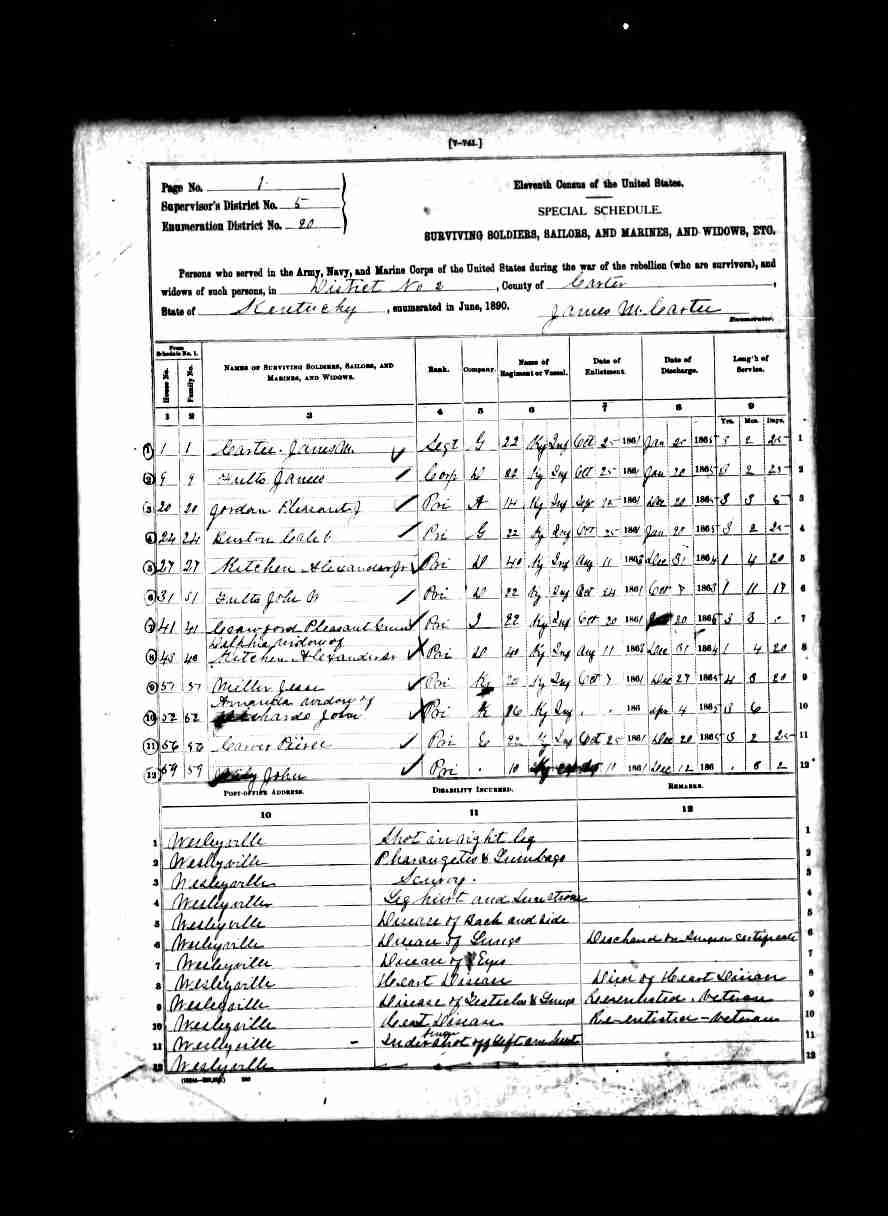 [7-741.]
Page No. 1
Supervisor's District No. 5
Enumeration District No. 20
Eleventh Census of the United States.
SPECIAL SCHEDULE.
SURVIVING SOLDIERS, SAILORS, AND MARINES, AND WIDOWS, ETC.
Persons who served in the Army, Navy, and Marine Corps of the United States during the war of the rebellion (who are survivors), and
widows of such persons, in District No 2, County of Carter,
State of Kentucky, enumerated in June, 1890. James M. Carter
Enumerator.
From Schedule No. 1.
House No. Family No. NAMES OF SURVIVING SOLDIERS, SAILORS, AND MARINES, AND WIDOWS. Rank. Company. Name of Regiment or Vessel. Date of Enlistment. Date of Discharge. Length of Service.
1 2 3 4 5 6 7 8 9
Yrs. Mos. Days.
1 1 1 Carter James M. Segt G 22 Ky Inf Oct 25 1861 Jan 20 1865 3 2 25 1
2 9 9 Fults James Corp D 22 Ky Inf Oct 25 1861 Jan 20 1865 3 2 25 2
3 20 20 Jordan Pleasant J Pri A 14 Ky Inf 1861 Dec 20 1864 3 3 3
4 24 24 Caleb Pri G 22 Ky Inf Oct 25 1861 Jan 20 1865 3 2 25 4
5 27 27 Kitchen Alexander Jr Pri D 40 Ky Inf Aug 11 1863 Dec 31 1864 1 4 20 5
6 31 31 Fults John Pri D 22 Ky Inf Oct 24 1861 Oct 1863 1 11 17 6
7 41 41 Crawford Pleasant Pri I 22 Ky Inf Oct 20 1861 20 1865 3 3 . 7
widow of
8 48 48 Kitchen Alexander Sr Pri D 40 Ky Inf Aug 11 1863 Dec 31 1864 1 4 20 8
9 51 51 Miller Jesse Pri K 20 Ky Inf Oct 7 1861 Dec 27 1865 4 20 9
Amanda widow of
10 52 52 John Pri K 16 Ky Inf . . 186 Apr 4 1865 3 6 10
11 56 56 Carver Pri E 22 Ky Inf Oct 25 1861 Dec 20 1865 3 2 25 11
12 59 59 John Pri . 10 Ky 10 1861 Dec 12 186 . 2 12
POST-OFFICE ADDRESS. DISABILITY INCURRED. REMARKS.
10 11 12
1 Wesleyville Shot in right leg 1
2 Wesleyville & Lumbago 2
3 Wesleyville Scurvy. 3
4 Wesleyville Leg hurt and 4
5 Wesleyville Disease of Back and Side 5
6 Wesleyville Disease of Lungs on Surgeon certificate 6
7 Wesleyville Disease of Eyes 7
8 Wesleyville Heart Disease Died of Heart Disease 8
9 Wesleyville Disease of Testicles & Lungs Veteran 9
10 Wesleyville Heart Disease Re-enlisted - Veteran 10
finger
11 Wesleyville shot off left arm hurt 11
12 Wesleyville 12